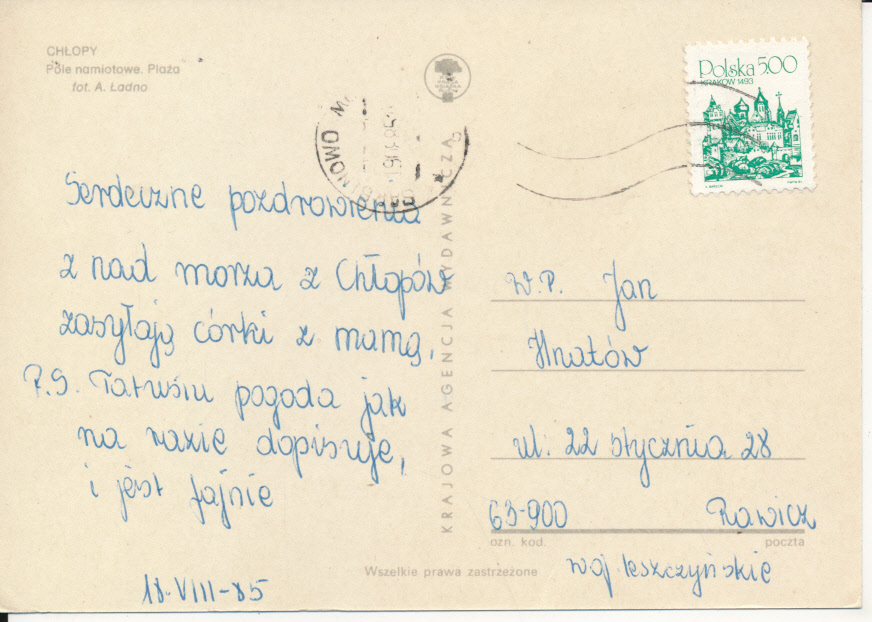 CHŁOPY
Pole namiotowe. Plaża
fot. A. Ładno
Serdeczne pozdrowienia
z nad morza z Chłopów
zasyłają córki z mamą.
P.S. Tatusiu pogoda jak
na razie dopisuje,
i jest fajnie
18-VIII-85
KRAJOWA AGENCJA WYDAWNICZA
Wszelkie prawa zastrzeżone
Polska 5.00
KRAKÓW 1493
W.P. Jan
Hnatów
ul. 22 stycznia 28
63-900 Rawicz
ozn. kod. poczta
woj leszczyńskie